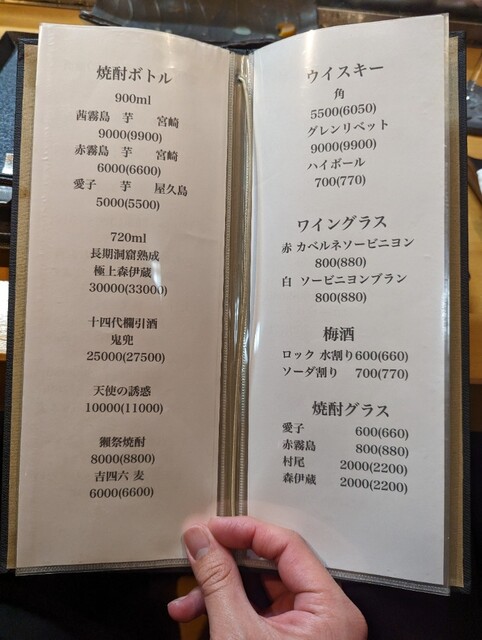 焼酎ボトル
900ml
茜霧島 芋 宮崎
9000(9900)
赤霧島 芋 宮崎
6000(6600)
愛子 芋 屋久島
5000(5500)
720ml
長期洞窟熟成
極上森伊蔵
30000(33000)
十四代欄引酒
鬼兜
25000(27500)
天使の誘惑
10000(11000)
獺祭焼酎
8000(8800)
吉四六 麦
6000(6600)
ウイスキー
角
5500(6050)
グレンリベット
9000(9900)
ハイボール
700(770)
ワイングラス
赤 カベルネソービニヨン
800(880)
白 ソービニヨンブラン
800(880)
梅酒
ロック 水割り600(660)
ソーダ割り 700(770)
焼酎グラス
愛子 600(660)
赤霧島 800(880)
村尾 2000(2200)
森伊蔵 2000(2200)